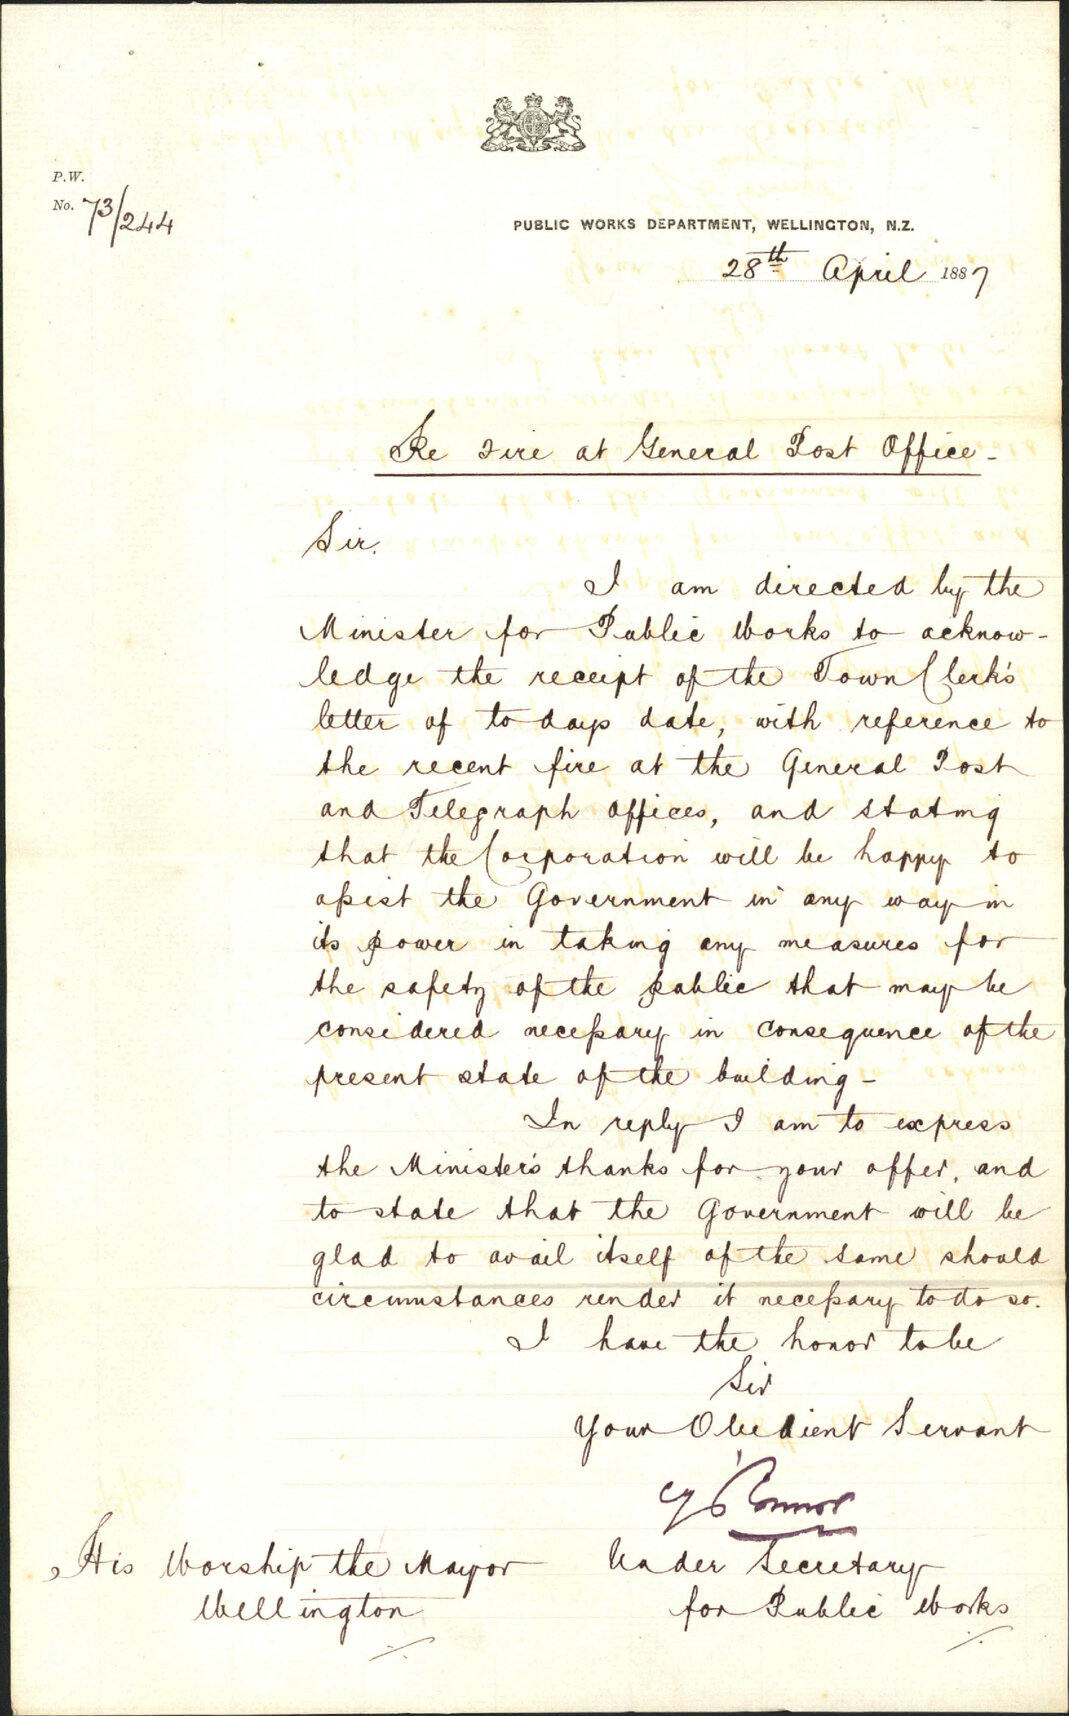 P.W.
No. 73/244
PUBLIC WORKS DEPARTMENT, WELLINGTON, N.Z.
28th April 1887
Re Fire at General Post Office -
Sir.
I am directed by the
Minister for Public Works to acknow-
ledge the receipt of the Town Clerk's
letter of to days date, with reference to
the recent fire at the General Post
and Telegraph Offices, and stating
that the Corporation will be happy to
assist the Government in any way in
its power in taking any measures for
the safety of the public that may be
considered necessary in consequence of the
present state of the building -
In reply I am to express
the Minister's thanks for your offer, and
to state that the Government will be
glad to avail itself of the same should
circumstances render it necessary to do so.
I have the honor to be
Sir
Your Obedient Servant
O'Connor
Under Secretary
for Public Works
His Worship the Mayor
Wellington